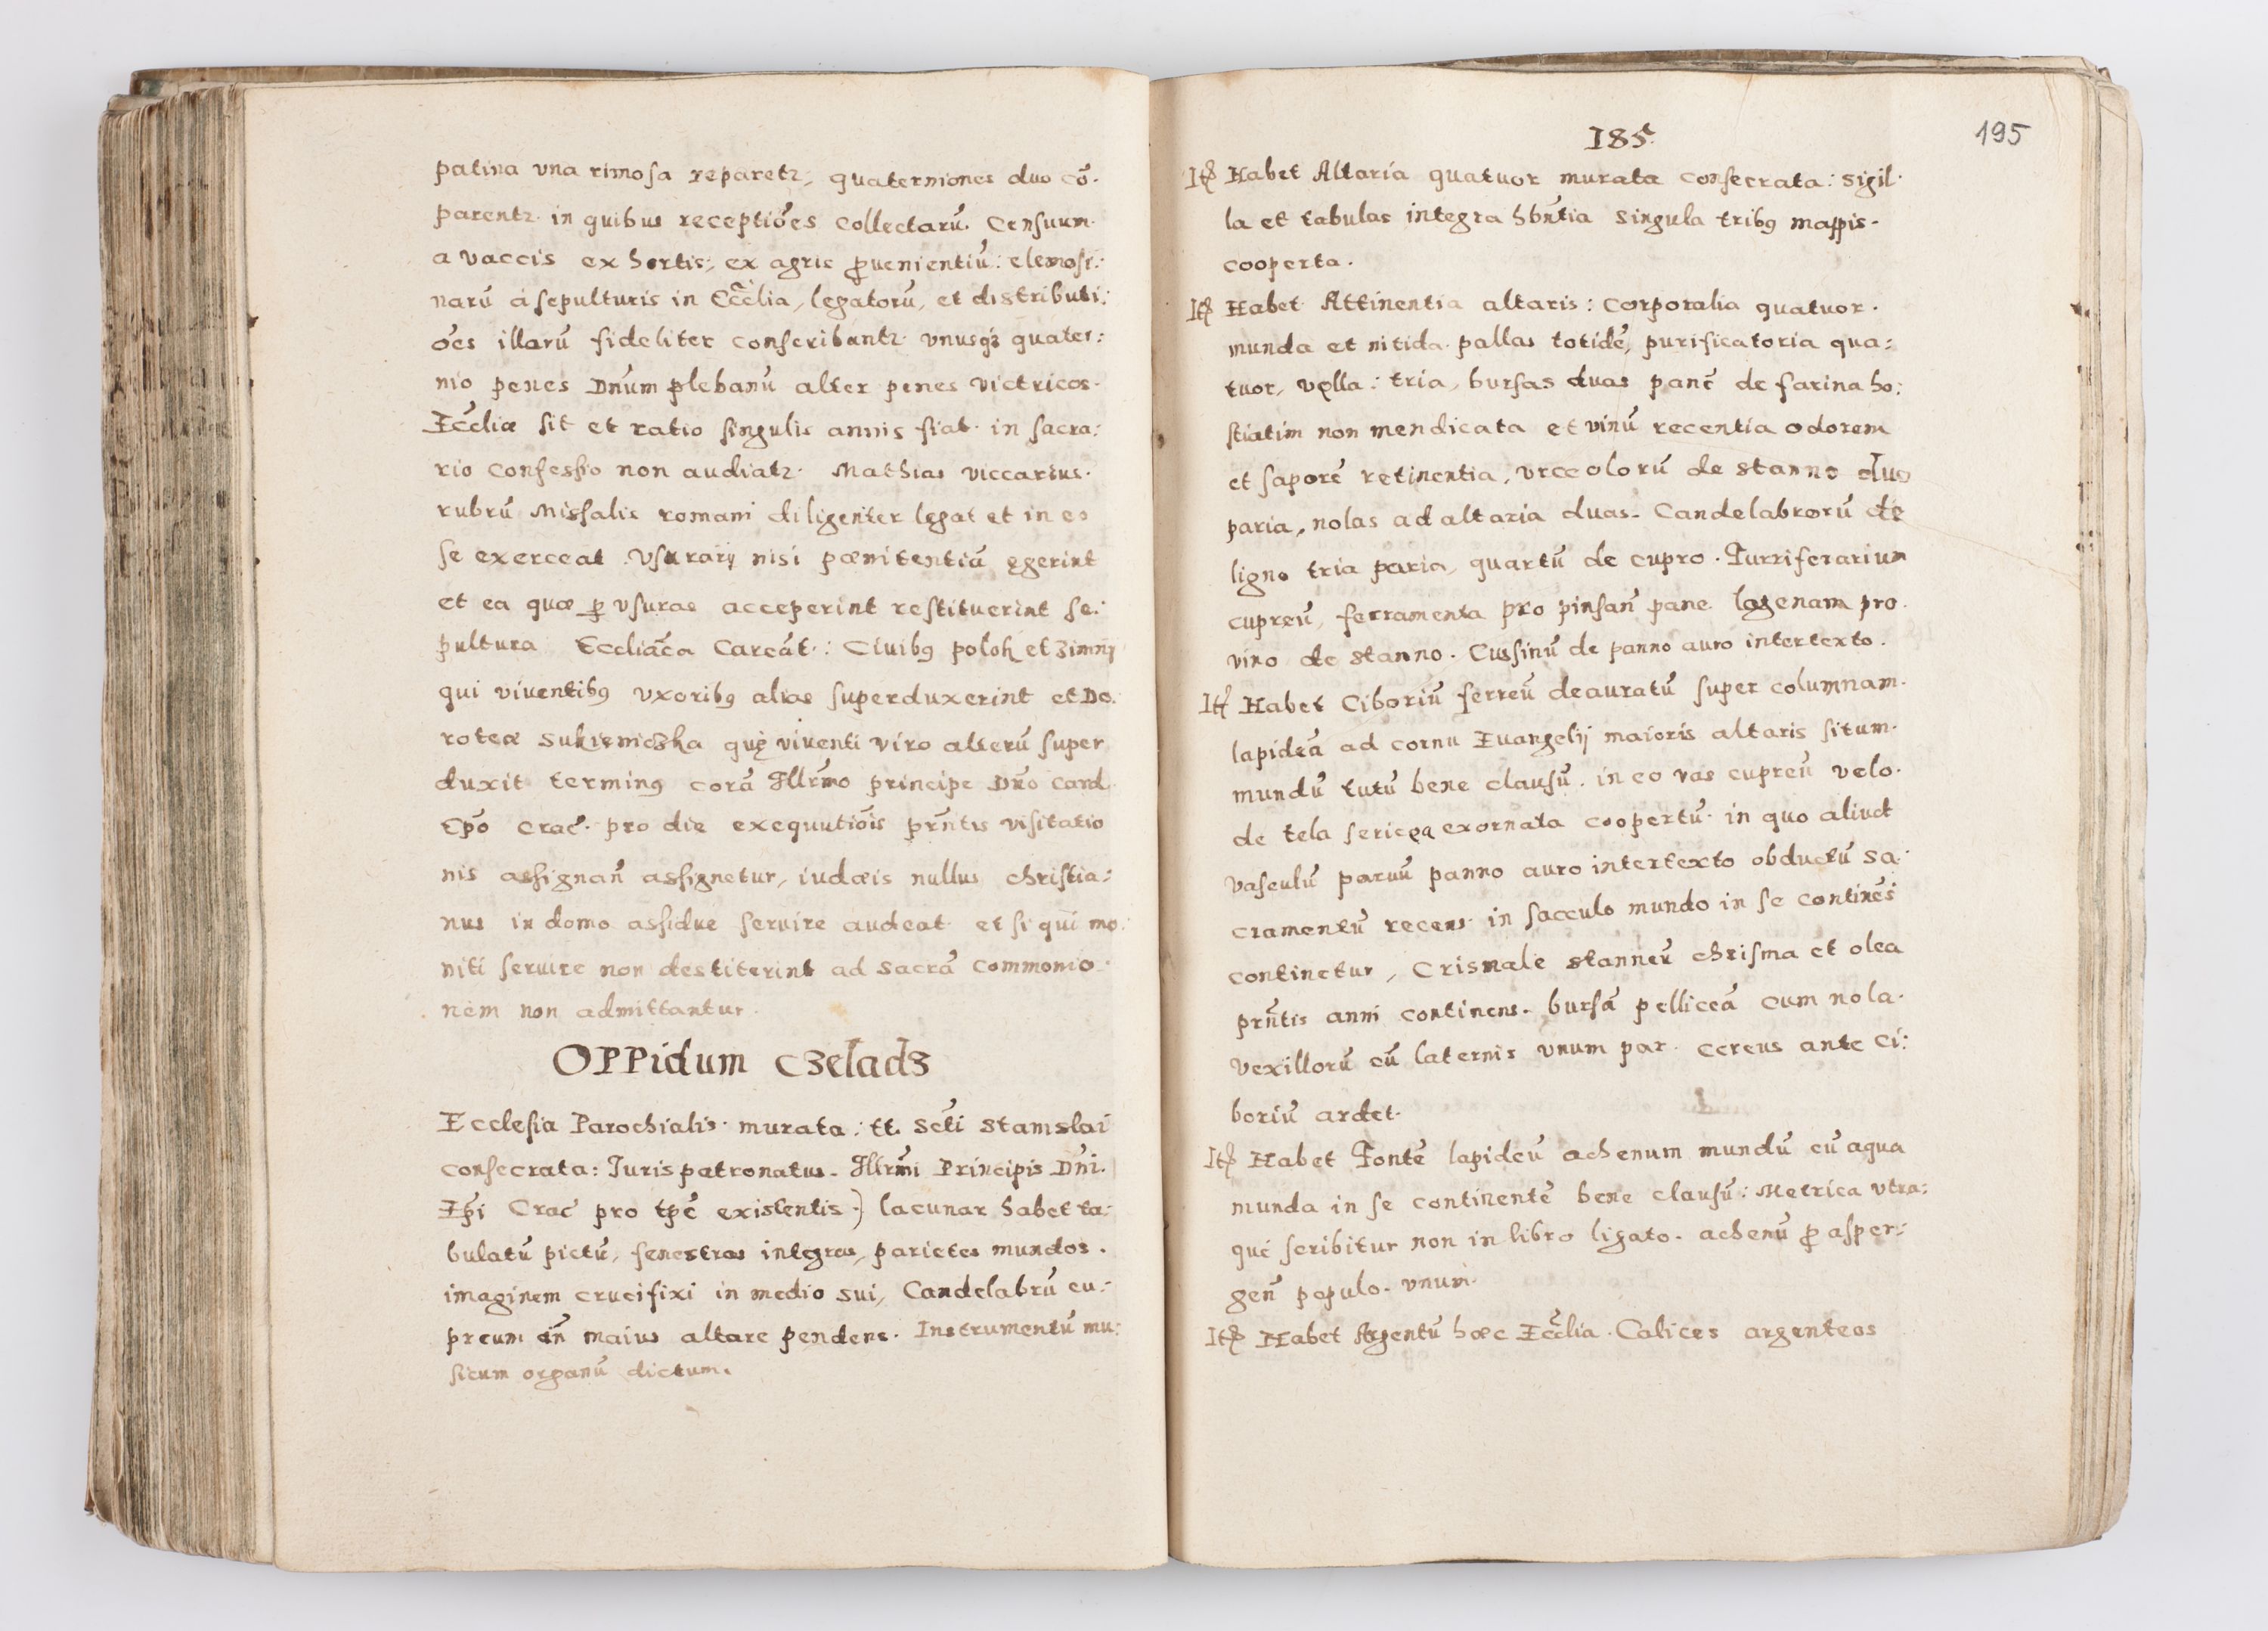 patina vna rimosa reparetr, quaterniones duo cō-
parentr. in quibus receptiōes collectarū. Censuum.
a vaccis ex hortis, ex agris ꝓuenientiū: elemosi:
narū a sepulturis in Eccl̃ia, legatorū, et distributi:
ōes illarū fideliter conscribantr. vnusqz quater:
nio penes Dn̄um plebanū alter penes victricos.
Eccl̃iæ sit et ratio singulis annis fiat. in sacra:
rio confessio non audiatr. Mathias viccarius.
rubrū Missalis romani diligenter legat et in eo
se exerceat. Vsurarij nisi pœnitentiā egerint
et ea quæ ꝑ vsuras acceperint restituerint se:
pultura Eccliãca Careāt: Ciuibꝯ poloh et zimny
qui viuentibꝯ vxoribꝯ alias superduxerint et Do:
roteæ sukienniczka quę viuenti viro alterū super
duxit terminꝯ corā Illr̄mo principe Dn̄o Card
Ep̄o Crac̄. pro die exequutiōis pr̄ntis visitatio
nis assignan̄ assignetur, iudæis nullus christia:
nus in domo assidue seruire audeat et si qui mo:
niti seruire non destiterint ad sacrā commonio:
nem non admittantur.
OPPidum Czeladz
Ecclesia Parochialis. murata: tt. Sc̄ti Stanislai
consecrata: Iuris patronatus. Illr̄mi Principis Dn̄i.
Ep̄i Crac̄ pro tp̄e existentis.) lacunar habet ta:
bulatū pictū, fenestras integras, parietes mundos.
imaginem crucifixi in medio sui, Candelabrū cu:
preum in maius altare pendens. Instrumentū mu:
sicum organū dictum.
185.
195
Itē Habet Altaria quatuor murata consecrata: sigil-
la et tabulas integra hbn̄tia singula tribꝯ mappis.
cooperta.
Itē Habet Attinentia altaris: Corporalia quatuor.
munda et nitida. pallas totidē, purificatoria qua:
tuor, vella: tria, bursas duas panē de farina ho:
stiatim non mendicata et vinū recentia odorem
et saporē retinentia, vrceolorū de stanno duo
paria, nolas ad altaria duas. Candelabrorū de
ligno tria paria, quartū de cupro. Turriferarium
cupreū, ferramenta pro pinsan̄ pane. lagenam pro.
vino de stanno. Cussinū de panno auro intertexto.
Itē Habet Ciboriū ferreū deauratū super columnam.
lapideā ad cornu Euangelij maioris altaris situm.
mundū tutū bene clausū. in eo vas cupreū velo.
de tela sericea exornata coopertū. in quo aliud
vasculū paruū panno auro intertexto obductū sa:
cramentū recens in sacculo mundo in se continēs
continetur, Crismale stanneū chrisma et olea
pr̄ntis anni continens. bursā pelliceā cum nola.
vexillorū cū laternis vnum par. cereus ante Ci:
boriū ardet.
Itē Habet Fontē lapideū achenum mundū cū aqua
munda in se continentē bene clausū: Metrica vtra:
qué scribitur non in libro ligato. achenū ꝓ asper:
gen̄ populo. vnum.
Itē Habet Argentū hæc Eccl̃ia. Calices argenteos